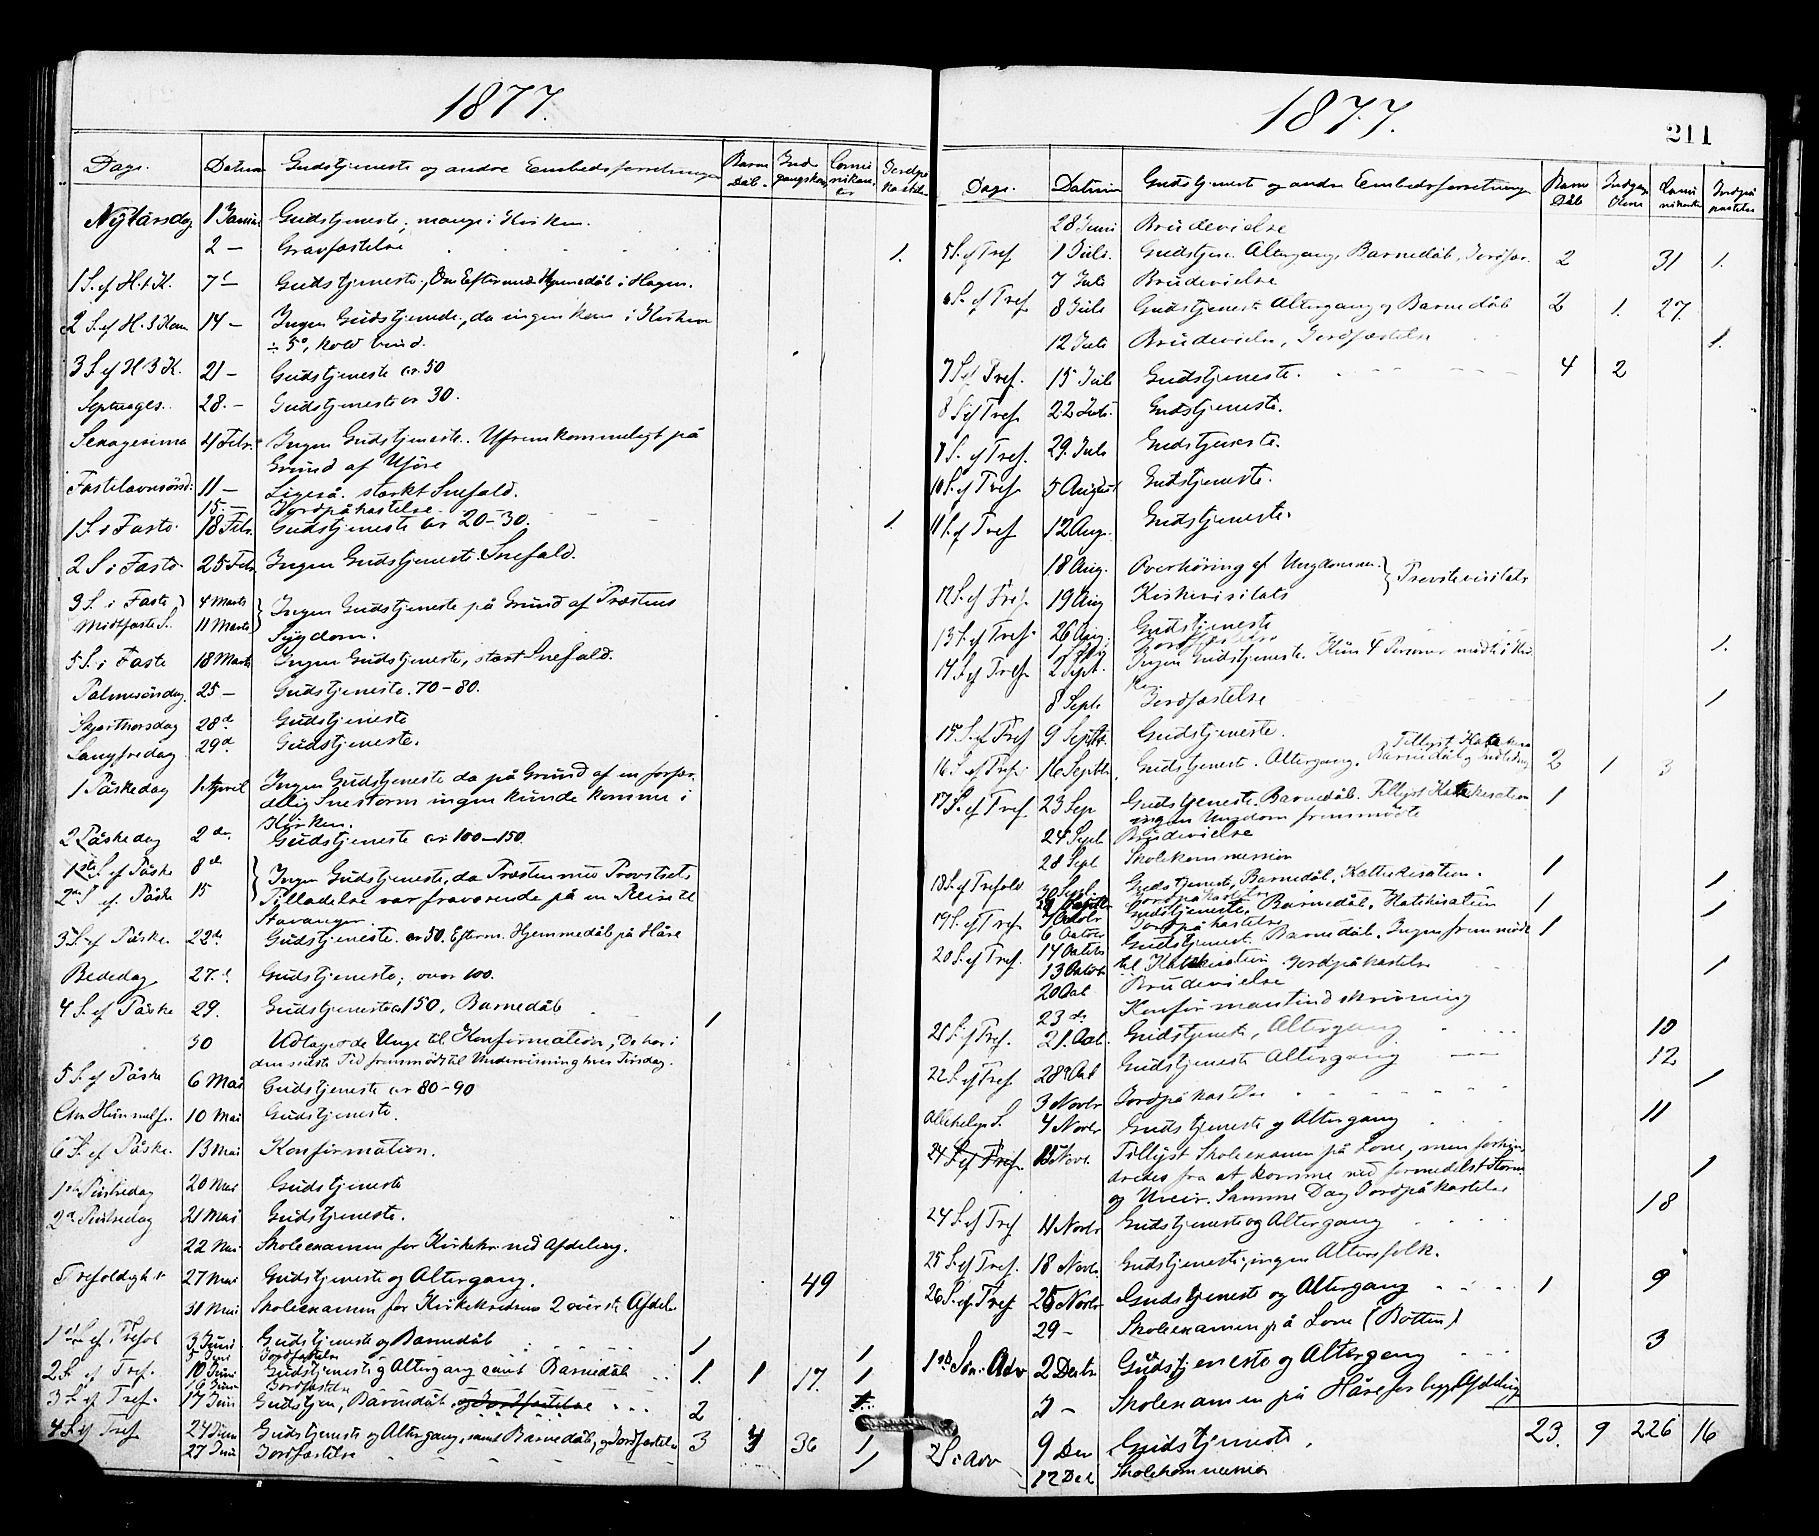 1877.
Dage. Datum Gudstjeneste og andre Embedsforretninger Barne Dåb. Ind gangskon Comu nikan ter Jordpå kastelse
Nytårsdag 1 Januar Gudstjeneste; mange i Kirken.
2 — Gravfæstelse 1.
1 S. ef H. 3 K. 7 — Gudstjeneste, Om Efterm. Hjemmedåb i Hagen.
2 S. ef H. 3 Kon 14 — Ingen Gudstjeneste, da ingen kom i Kirken
÷ 5°, kold Vind.
3 S. ef H 3 K. 21 — Gudstjeneste cr 50
Septuages. 28. — Gudstjeneste cr 30.
Sexagesima 4 Febr. Ingen Gudstjeneste. Ufremkommeligt på
Grund af Uføre
Fastelavnssønd. 11 — Ligeså. stærkt Snefald.
15. — Jordpåkastelse
1 S. i Faste. 18 Febr. Gudstjeneste cr 20-30. 1.
2 S. i Faste 25 Febr. Ingen Gudstjeneste. Snefald.
3 S. i Faste 4 Marts Ingen Gudstjeneste på Grund af Præstens
Midtfaste S. 11 Marts Sygdom.
5 S. i Faste 18 Marts Ingen Gudstjeneste, stært Snefald.
Palmesøndag 25 — Gudstjeneste. 70-80.
Skjærthorsdag 28d Gudstjeneste
Langfredag 29d. Gudstjeneste.
1 Påskedag 1 April Ingen Gudstjeneste da på Grund af en forfær
delig Snestorm ingen kunde komme i
Kirken.
2 Påskedag 2 de. Gudstjeneste cr 100-150.
1ste S. ef Påske 8de Ingen Gudstjeneste, da Præsten med Provstiets
2den S. ef Påske 15 Tilladelse var fraværende på en Reise til
Stavanger
3 S. ef Påske. 22de Gudstjeneste. cr 50. Efterm. Hjemmedåb på Håre
Bededag 27. Gudstjeneste; over 100.
4 S. ef Påske 29. Gudstjeneste cr 150, Barnedåb 1
30 Udtagelse de Unge til Konfirmation, De har i
den sidste Tid fremmødt til Undervisning hver Tirsdag.
5 S. ef Påske 6 Mai Gudstjeneste cr 80-90
Chr Himmelf. 10 Mai Gudstjeneste.
6 S. ef Påske. 13 Mai Konfirmation.
1ste Pintsedag 20 Mai Gudstjeneste
2d Pintsedag 21 Mai Gudstjeneste.
22 Mai Skoleexamen for Kirkekr. ned Afdeling.
Trefoldighd 27 Mai Gudstjeneste og Altergang. 49
31 Mai Skoleexamen for Kirkekredsens 2 øverste Afdel.
1 S. ef. Trefol 3 Juni Gudstjeneste og Barnedåb 1
5 Juni Jordfæstelse 1
2 S. ef Tref. 10 Juni Gudstjeneste og Altergang samt Barnedåb 1 1 17. 1
16 Juni Jordfæstelse
3 S. ef Tref. 17 Juni Gudstjen, Barnedåb og Jordfæstelse 2 1
4 S. ef Tref 24 Juni Gudstjeneste og Altergang, samt Barnedåb, og Jordfæstelse 3 4 36 1
27 Juni Jordfæstelse 1
1877.
211
Dage. Datum Gudstjeneste og andre Embedsforretninger Barne Dåb Indgangs Kone Comu nikanter Jordpå kastelse
28 Juni Brudevielse
5 S. ef Tref 1 Juli. Gudstjen. Altergang, Barnedåb, Jordfæs. 2 31 1.
7 Juli Brudevielse
6 S. ef Tref 8 Juli Gudstjeneste Altergang og Barnedåb 2 1. 27.
12 Juli Brudevielse, Jordfæstelse 1.
7 S. ef Tref. 15 Juli Gudstjeneste. 4 2
8 S. ef Tref 22 Juli. Gudstjeneste.
8 S. ef Tref. 29. Juli Gudstjeneste.
10 S. ef Tref 5 August Gudstjeneste.
11 S. ef Tref 12 Aug. Gudstjeneste.
18 Aug. Overhøring af Ungdommen. Provstevisitats
12 S. ef Tref. 19 Aug Kirkevisitats
13 S. ef Tref. 26 Aug. Gudstjeneste
Jordfæstelse 1.
14 S. ef Tref 2 Sept. Ingen Gudstjeneste. Kun 4 Personer mødte i Kir
ken
8 Sept. Jordfæstelse 1
15 S. ef Tref 9 Septbr. Gudstjeneste.
16 S. ef Tref. 16 Septbr. Gudstjeneste. Altergang. Barnedåb og Indledning 2 1 3
Tillyst Katekisa
17 S. ef Tref 23 Sep Gudstjeneste. Barnedåb. Tillyst Katekisation 1
ingen Ungdom fremmødte
24 Sept Brudevielse
28 Sept Skolekommission
18 S. ef Trefold 30 Sept. Gudstjeneste, Barnedåb, Kattekisation. 1
Jordpåkastelse 1
19 S. ef Tref 7 Octobr Gudstjeneste Barnedåb, Katekisation 1
6 October Jordpåkastelse 1
20 S. ef Tref. 14 October Gudstjenest. Barnedåb. Ingen fremmødt 1
13 October til Katekisation. Jordpåkastelse 1
20 Oct Brudevielse
23 d. Konfirmantindskrivning
21 S. ef Tref. 21. Oct. Gudstjeneste, Altergang 10
22 S. ef Tref 28 Oct Gudstjeneste Altergang 12
3 Novbr Jordpåkastelse 1
Allehelgn S. 4 Novbr Gudstjeneste og Altergang 11
24 S. ef Tref. Novr. Tillyst Skoleexamen på Lone, men forhin
dredes fra at komme ned formedelst Storm
og Uveir. Samme Dag Jordpåkastelse 1
24 S. ef Tref 11 Novbr Gudstjeneste og Altergang 18
25 S. ef Tref. 18 Novbr. Gudstjeneste; ingen Altersfolk.
26 S. ef Tref 25 Novbr Gudstjeneste og Altergang 1 9
29 — Skoleexamen på Lone (Botten)
1ste Søn. Adv 2 Decbr Gudstjeneste og Altergang 3
7 — Skolexamen på Håre for begge Afdeling
23. 9 226 16
2 S. i Adv 9 Dec Gudstjeneste.
12 Dec Skolekommission